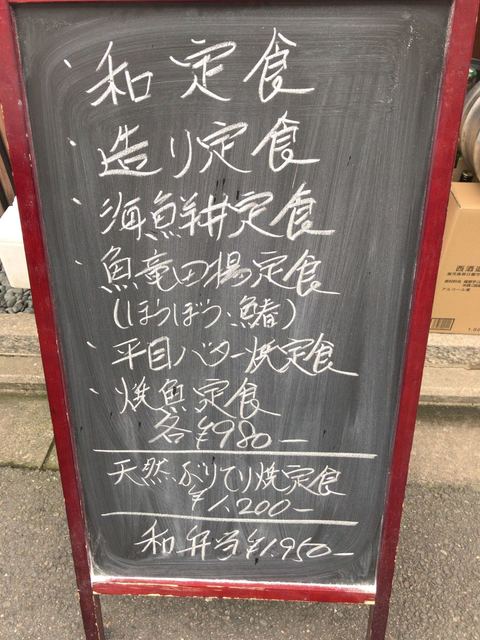 ・和定食
・造り定食
・海鮮丼定食
・魚竜田揚定食
(ほうぼう、鰆)
・平目バター焼定食
・焼魚定食
各¥980-
天然ぶりてり焼定食
¥1,200-
和弁当¥1.950-